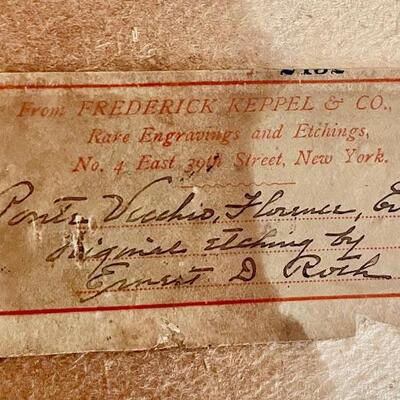 From FREDERICK KEPPEL & CO.,
Rare Engravings and Etchings,
No. 4 East 39th Street, New York.
Ponte Vecchio, Florence,
original etching by
Ernest D Roth